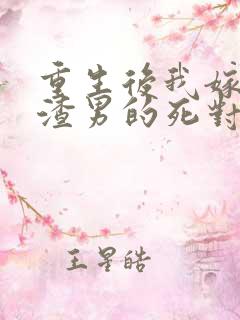 重生後我嫁
渣男的死對
王星皓